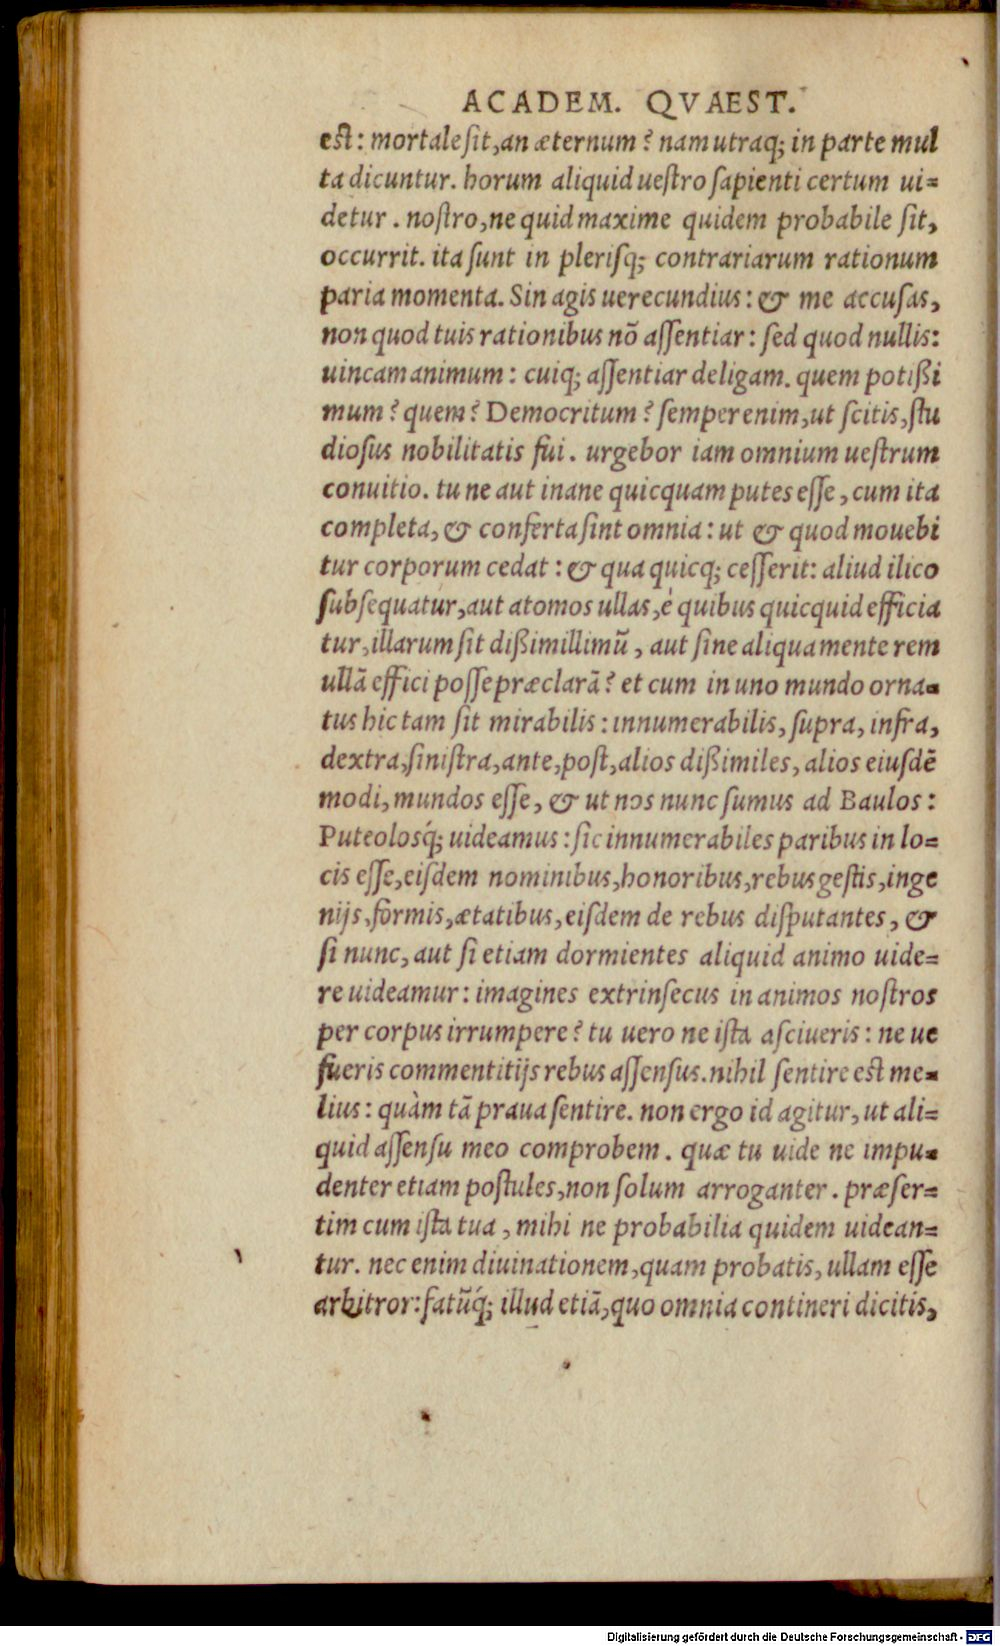 ACADEM. QVAEST.
est: mortale ſit, an æternum? nam utraq; in parte mul
ta dicuntur. horum aliquid ueſtro ſapienti certum ui=
detur. noſtro, ne quid maxime quidem probabile ſit,
occurrit. ita ſunt in pleriſq; contrariarum rationum
paria momenta. Sin agis uerecundius: & me accuſas,
non quod tuis rationibus nō aſſentiar: ſed quod nullis:
uincam animum: cuiq; aſſentiar deligam. quem potißi
mum? quem? Democritum? ſemper enim, ut ſcitis, ſtu
dioſus nobilitatis fui. urgebor iam omnium ueſtrum
conuitio. tu ne aut inane quicquam putes eſſe, cum ita
completa, & conferta ſint omnia: ut & quod mouebi
tur corporum cedat: & qua quicq; ceſſerit: aliud ilico
ſubſequatur, aut atomos ullas, é quibus quicquid efficia
tur, illarum ſit dißimillimū, aut ſine aliqua mente rem
ullā effici poſſe præclarā? et cum in uno mundo orna=
tus hic tam ſit mirabilis: innumerabilis, ſupra, infra,
dextra, ſiniſtra, ante, poſt, alios dißimiles, alios eiuſdē
modi, mundos eſſe, & ut nos nunc ſumus ad Baulos:
Puteolosq́; uideamus: ſic innumerabiles paribus in lo=
cis eſſe, eiſdem nominibus, honoribus, rebus geſtis, inge
nijs, formis, ætatibus, eiſdem de rebus diſputantes, &
ſi nunc, aut ſi etiam dormientes aliquid animo uide=
re uideamur: imagines extrinſecus in animos noſtros
per corpus irrumpere? tu uero ne iſta aſciueris: ne ue
fueris commentitijs rebus aſſenſus. nihil ſentire est me=
lius: quàm tā praua ſentire. non ergo id agitur, ut ali=
quid aſſenſu meo comprobem. quæ tu uide ne impu=
denter etiam poſtules, non ſolum arroganter. præſer=
tim cum iſta tua, mihi ne probabilia quidem uidean=
tur. nec enim diuinationem, quam probatis, ullam eſſe
arbitror: fatūq́; illud etiā, quo omnia contineri dicitis,
Digitalisierung gefördert durch die Deutsche Forschungsgemeinschaft - DFG